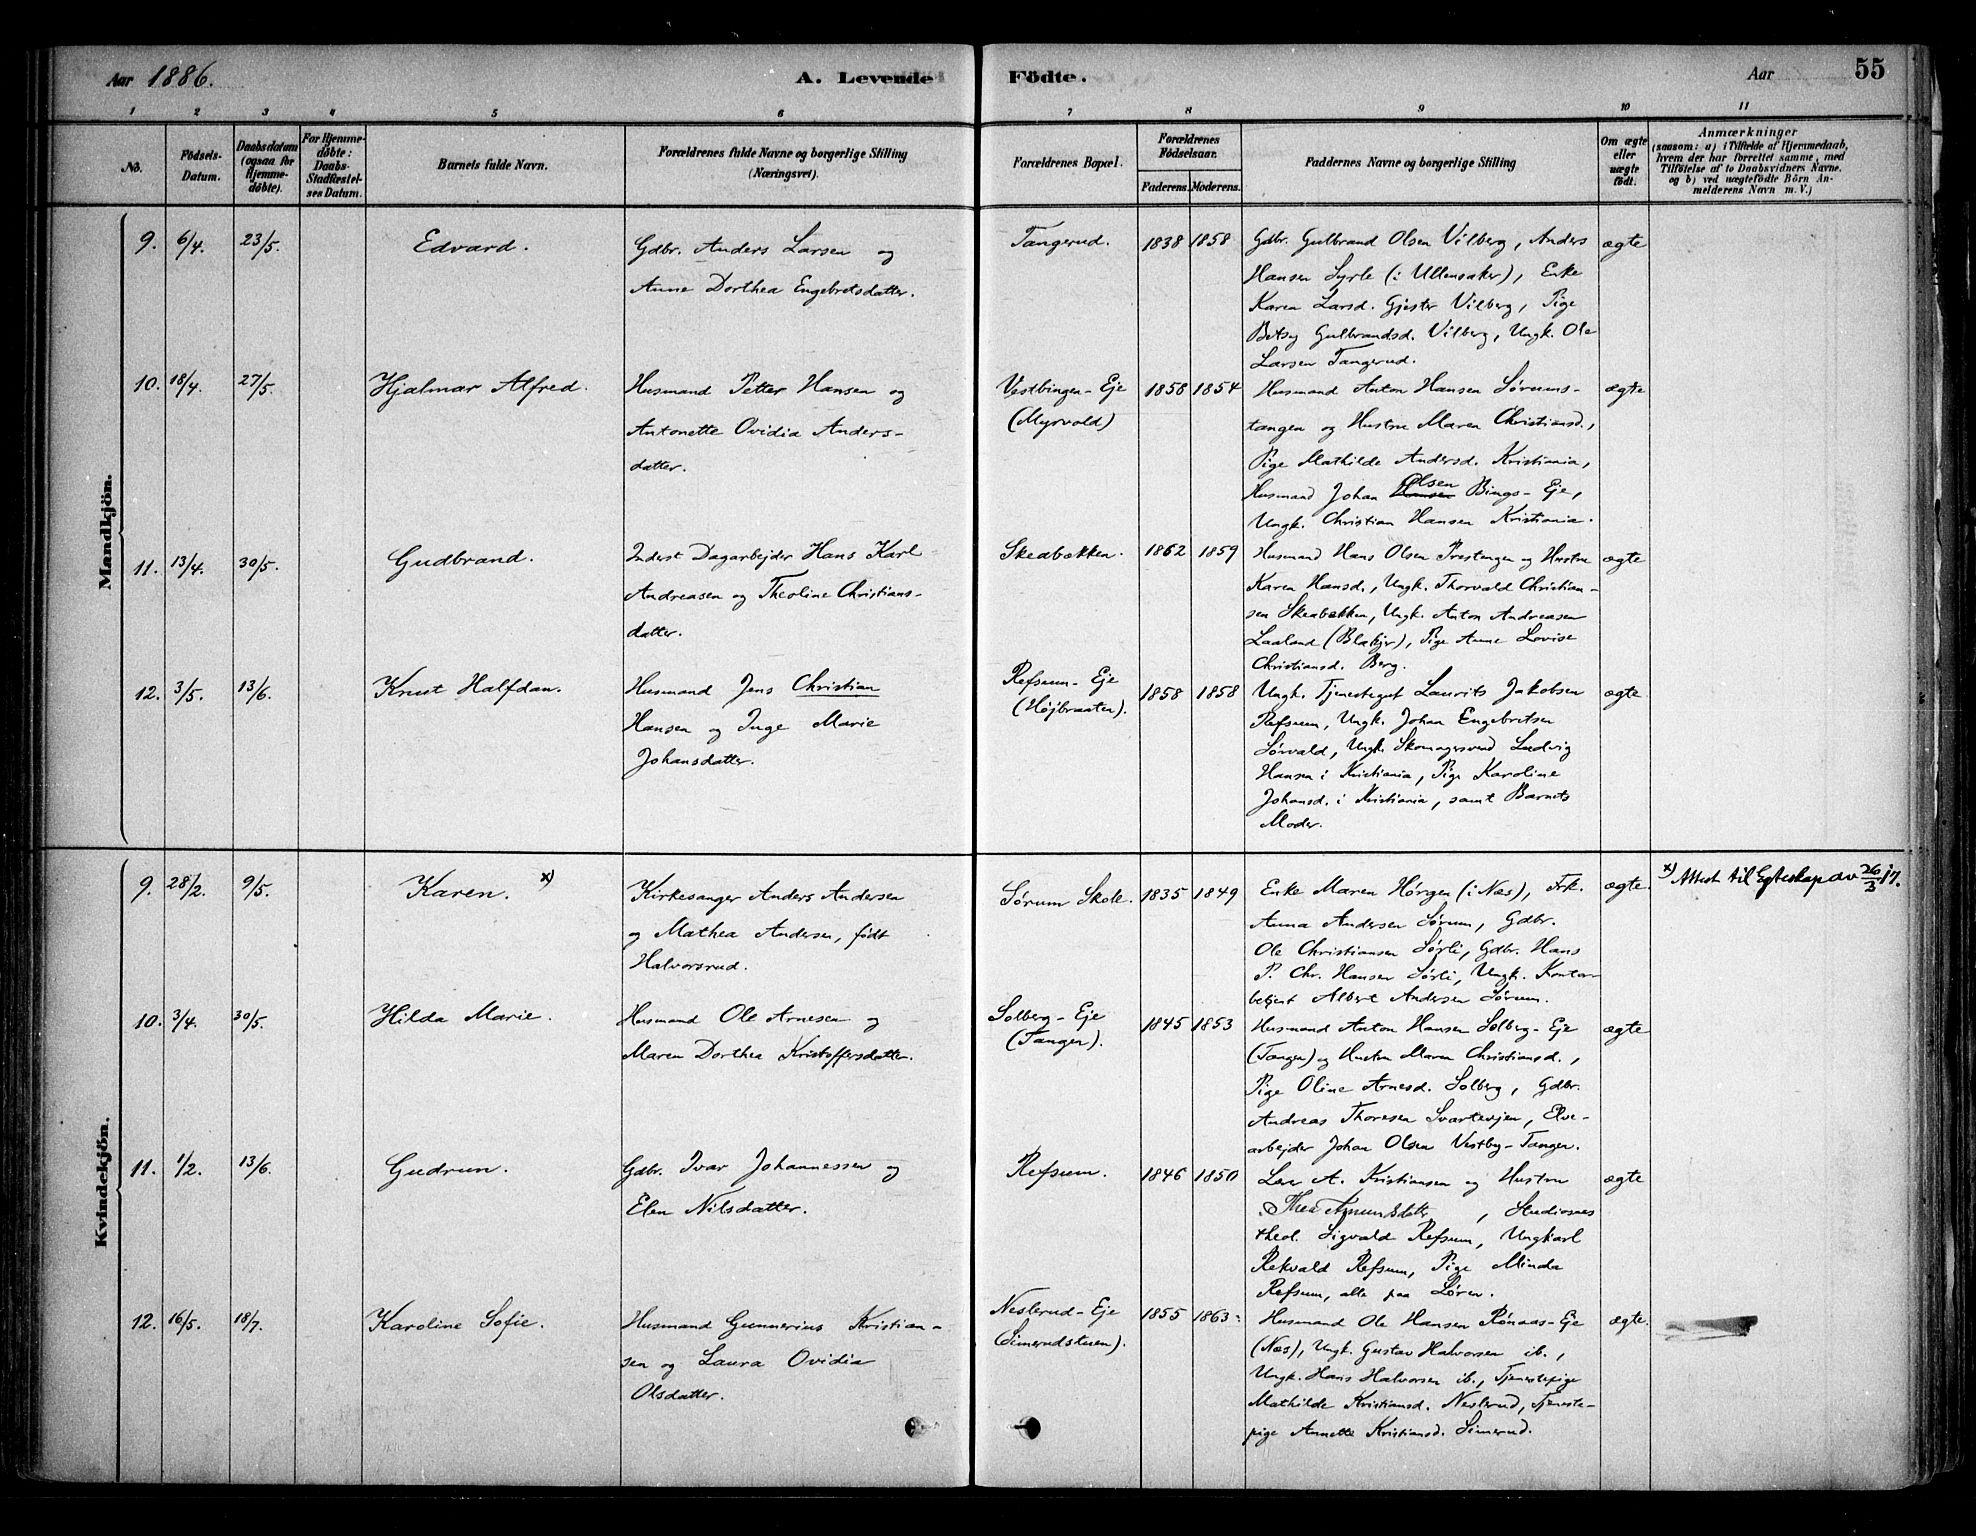 Aar 1886.
A. Levende Födte.
Aar
55
1 2 3 4 5 6 7 8 9 10 11
No.
Födsels-
Datum.
Daabsdatum
(ogsaa for
Hjemme-
döbte).
For Hjemme-
döbte:
Daabs-
Stadfæstel-
ses Datum.
Barnets fulde Navn.
Forældrenes fulde Navne og borgerlige Stilling
(Næringsvei).
Forældrenes Bopæl.
Forældrenes
Födselsaar.
Faderens. Moderens.
Faddernes Navne og borgerlige Stilling
Om ægte
eller
uægte
født.
Anmærkninger
(saasom: a) i Tilfælde af Hjemmedaab,
hvem der har forrettet samme, med
Tilföielse af to Daabsvidners Navne.
og b) ved uægtefödte Börn An-
melderens Navn m. V.)
Mandkjön.
9. 6/4. 23/5. Edvard.
Gdbr. Anders Larsen og
Anne Dorthea Engebretsdatter.
Tangerud. 1838 1858
Gdbr. Gulbrand Olsen Vilberg, Anders
Hansen Syrle (i Ullensaker), Enke
Karen Larsd. Gjester Vilberg, Pige
Betsy Gulbrandsd. Vilberg, Ungk. Ole
Larsen Tangerud.
ægte
10. 18/4. 27/5. Hjalmar Alfred.
Husmand Petter Hansen og
Antonette Ovidia Anders-
datter.
Vestbingen-Eje
(Myrvold)
1858 1854
Husmand Anton Hansen Sørums-
tangen og Hustru Maren Christiansd.,
Pige Mathilde Andersd. Kristiania,
Husmand Johan Hansen Olsen Bings-Eje,
Ungk. Christian Hansen Kristiania.
ægte
11. 13/4. 30/5. Gudbrand.
Inderst Dagarbejder Hans Karl
Andreasen og Theoline Christians-
datter.
Skeabækken. 1862 1859
Husmand Hans Olsen Prestengen og Hustru
Karen Hansd., Ungk. Thorvald Christian-
sen Skeabækken, Ungk. Anton Andreasen
Laaland (Blakjer), Pige Anne Lovise
Christiansd. Berg.
ægte
12. 3/5. 13/6. Knut Halfdan.
Husmand Jens Christian
Hansen og Inge Marie
Johansdatter.
Refsum-Eje
(Højbraaten).
1858 1858
Ungk. Tjenestegut Laurits Jakobsen
Refsum, Ungk. Johan Engebretsen
Sørvald, Ungk. Skomagersvend Ludvig
Hansen i Kristiania, Pige Karoline
Johansd. i Kristiania, samt Barnets
Moder.
ægte
Kvindekjön.
9. 28/2. 9/5. Karen. x)
Kirkesanger Anders Andersen
og Mathea Andersen, født
Halvorsrud.
Sørum Skole. 1835 1849
Enke Maren Hørgen (i Næs), Frk.
Anna Andersen Sørum, Gdbr.
Ole Christiansen Sørli, Gdbr. Hans
P. Chr. Hansen Sørli, Ungk. Kontor-
betjent Albert Andersen Sørum.
ægte.
x) Attest til Egteskap av 26/3 17.
10. 3/4. 30/5. Hilda Marie.
Husmand Ole Arnesen og
Maren Dorthea Kristoffersdatter.
Solberg-Eje
(Tangen).
1845 1853
Husmand Anton Hansen Solberg-Eje
(Tangen) og Hustru Maren Christiansd.,
Pige Oline Arnesd. Solberg, Gdbr.
Andreas Thoresen Svartevjen, Elve-
arbejder Johan Olsen Vestby-Tangen.
ægte
11. 1/2. 13/6. Gudrun.
Gdbr. Ivar Johannessen og
Elen Nilsdatter.
Refsum. 1846 1850
A. Kristiansen og Hustru
Thea Amundsdatter, Studiosus
theol. Sigvald Refsum, Ungkarl
Rekvald Refsum, Pige Minda
Refsum, alle paa
ægte
12. 16/5. 18/7. Karoline Sofie.
Husmand Gunnerius Kristian-
sen og Laura Ovidia
Olsdatter.
Neslerud-Eje
(Simerudstuen).
1855 1863
Husmand Ole Hansen Rønaas-Eje
(Næs), Ungk. Gustav Halvorsen ib.,
Ungk. Hans Halvorsen ib., Tjenestepige
Mathilde Kristiansd. Neslerud, Tjeneste-
pige Annette Kristiansd. Simerud.
ægte.